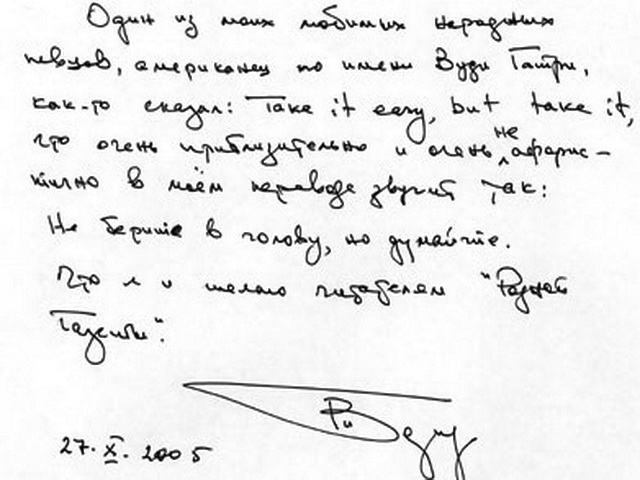 Один из моих любимых народных
певцов, американец по имени Вуди Гатри,
как-то сказал: Take it easy, but take it,
что очень приблизительно и очень не афорис-
тично в моём переводе звучит так:
Не берите в голову, но думайте.
Что я и желаю читателям "Разной
Газеты".
27. X. 2005